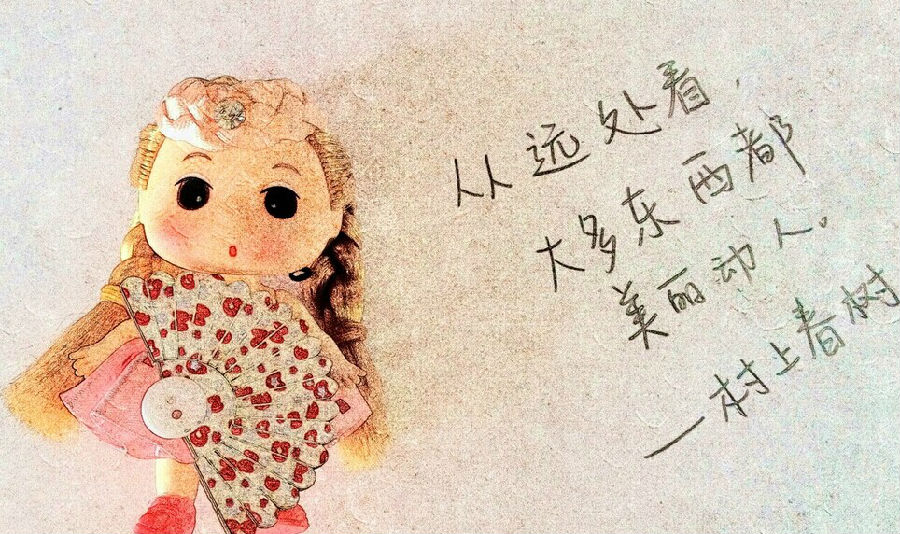 从远处看，
大多东西都
美丽动人。
—村上春树